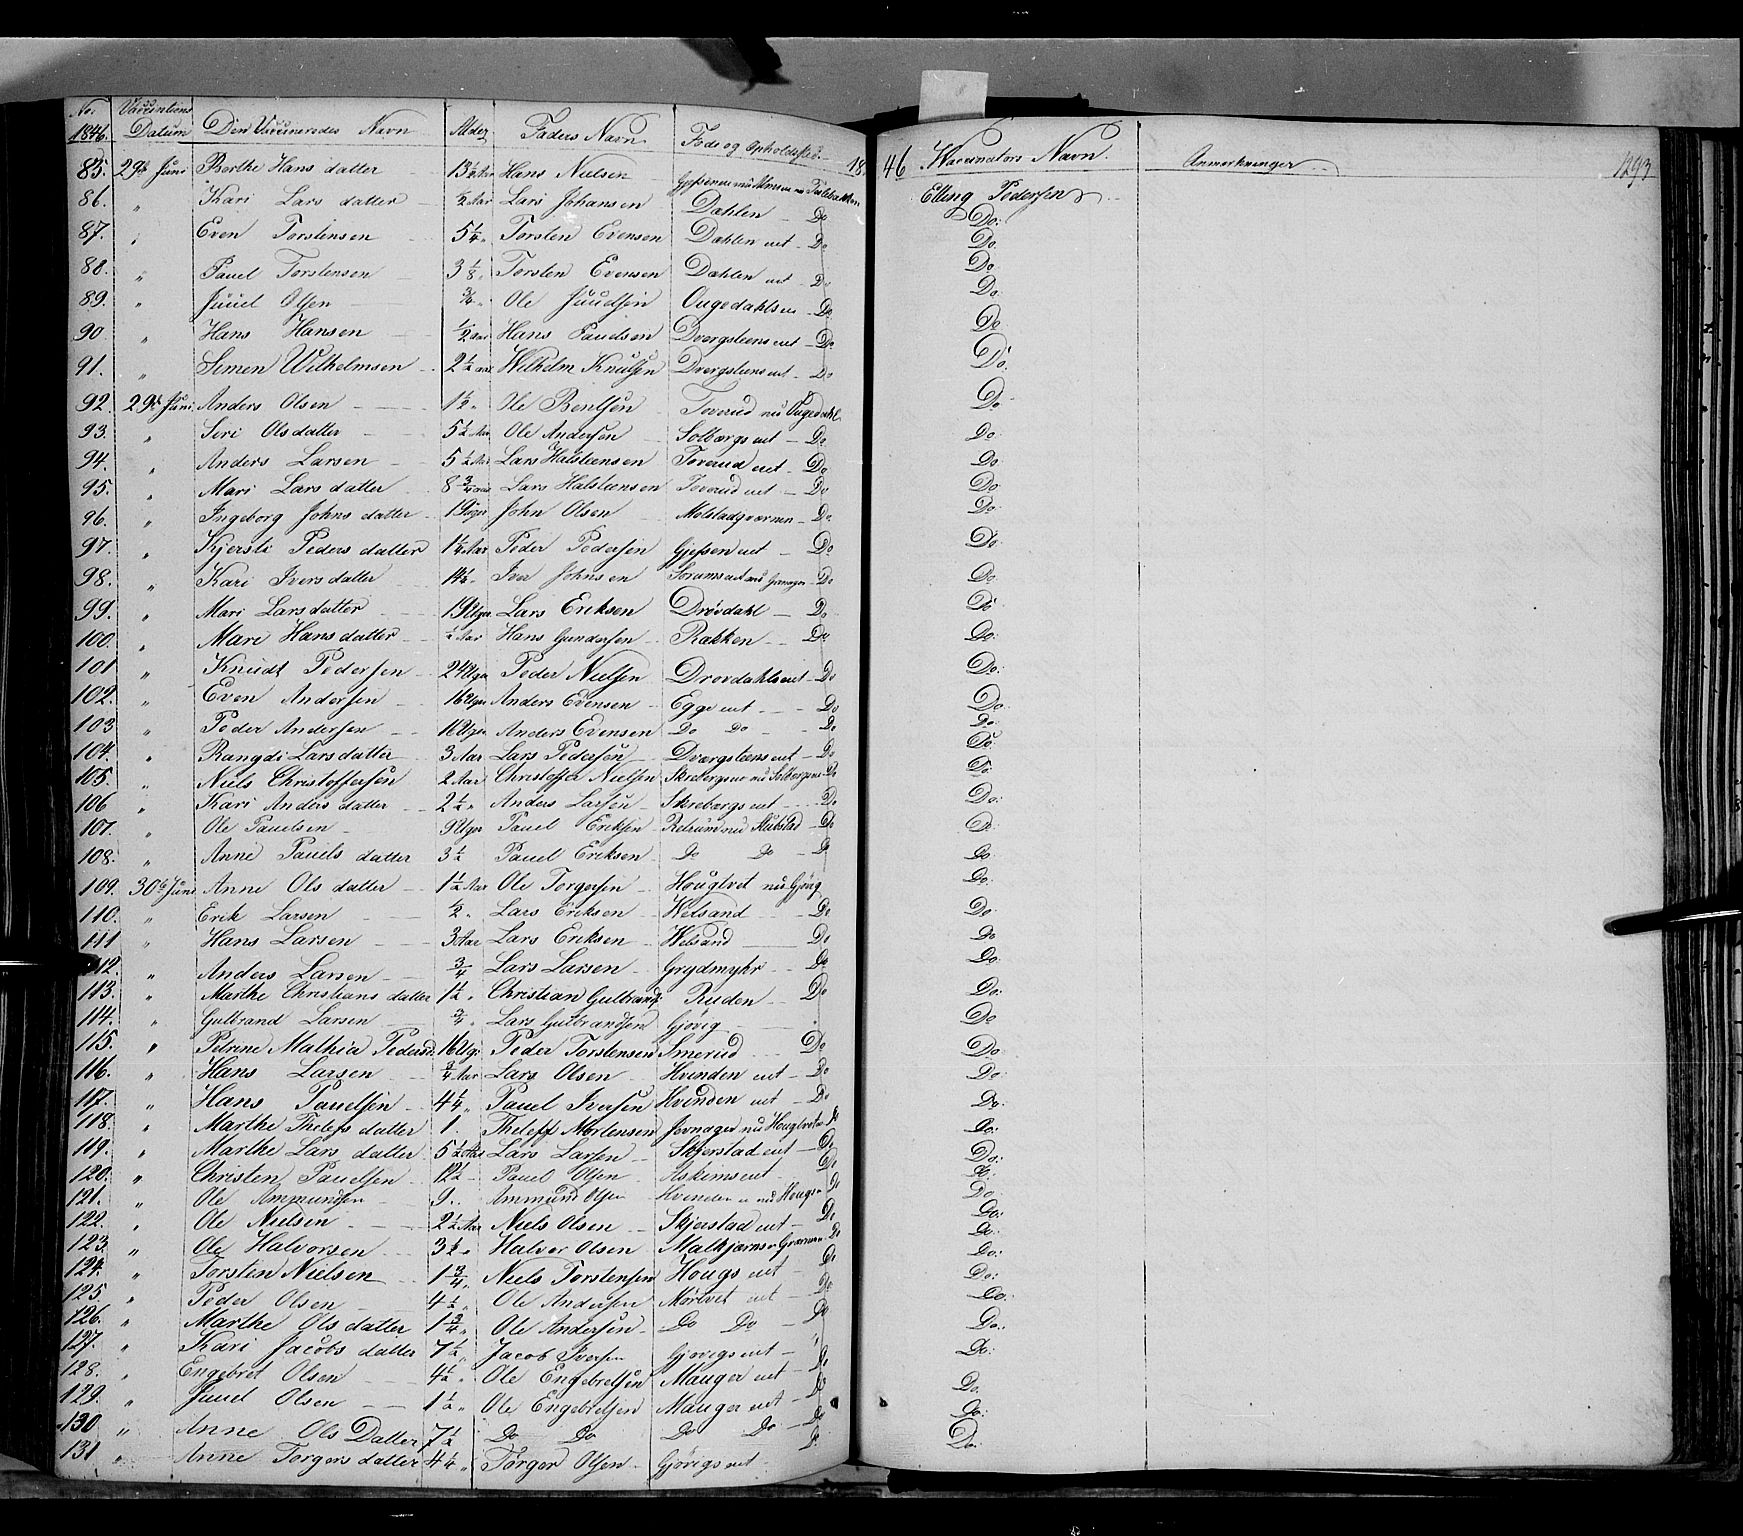 No. Vaccinations
1846. Datum Den Vaccineredes Navn Alder Faders Navn Føde og Opholdssted 18
46 Vaccinators Navn. Anmerkninger 293
85. 29de Juni Berthe Hans datter 13 Uger Hans Nielsen Elling Pedersen
86. " Kari Lars datter ½ Aar Lars Johansen Dæhlen - Do Do:
87. " Even Torstensen 5¼ " Torsten Evensen Dæhlen eiet - Do Do
88. " Pauel Torstensen 3⅛ " Torsten Evensen Dæhlen eiet - Do Do
89. " Juuel Olsen ¾ " Ole Juudsen Ougedahlsen - Do Do
90 " Hans Hansen ½ aar Hans Paulsen Dvergsteens eiet - Do Do
91. " Simen Wilhelmsen 2½ aar Wilhelm Knutsen Dvergsteens eiet - Do Do.
92. 29de Juni Anders Olsen 1½ " Ole Bentsen Toverud nu Ougedahl Do
93. " Siri Olsdatter 5½ Aar Ole Andersen Solbergs eiet - Do Do.
94. " Anders Larsen 5½ Aar Lars Halsteensen Toverud eiet - Do Do.
95. " Mari Lars datter 8¾ aar Lars Halsteensen Toverud eiet - Do Do
96. " Ingeborg Johns datter 19 Uger John Olsen Molstadqværnen - Do Do.
97. " Kjersti Peders datter 1¼ Aar Peder Pedersen Gjefsen eiet - Do Do.
98. " Kari Ivers datter 14½ " Iver Johnsen Do Do.
99. " Mari Lars datter 19 Uger Lars Eriksen Drövdahl - Do Do
100. " Mari Hans datter ½ Aar Hans Gundersen Rækken - Do Do.
101 " Knudt Pedersen 24 Uger Peder Nielsen Drovdahls eiet - Do Do:
102. " Even Andersen 16 Uger Anders Evensen Egge eiet - Do Do.
103 " Peder Andersen 16 Uger Anders Evensen Do Do - Do Do.
104. " Rangdi Lars datter 3 Aar Lars Pedersen Dværgsteens eiet - Do Do.
105. " Niels Christoffersen 2 Aar Christoffer Nielsen Do Do
106 " Kari Anders datter 2½ " Anders Larsen Skrebærgs eiet - Do Do:
107. " Ole Pauelsen 9 Uger Pauel Eriksen Do Do
108. " Anne Pauels datter 3½ Pauel Eriksen Do Do - Do Do.
109. 30te Juni Anne Ols datter 1½ Aar Ole Torgersen Hougtvet nu Gjövig Do.
110. " Erik Larsen ½ " Lars Eriksen Wetsand Do Do.
111 " Hans Larsen 3 Aar Lars Eriksen Wetsand Do Do
112. " Anders Larsen ¾ Lars Larsen Grydmyhr Do Do.
113. " Marthe Christians datter 1½ " Christian Gulbrands Ruden Do Do.
114. " Gulbrand Larsen ¾ " Lars Gulbrandsen Gjövig " Do
115. " Petrine Mathia Pedersd 16 Uger Peder Torstensen Smerud Do Do
116. " Hans Larsen ¾ Aar Lars Olsen Hvinden eiet - Do Do:
117. " Hans Pauelsen 4¼ " Pauel Iversen Hvinden eiet - Do Do.
118. " Marthe Thelefs datter 1. Theleff Mortensen Jevnager nu Hougtvet Do Do:
119. " Marthe Lars datter 5½ Aar Lars Larsen Skjerstad eiet - Do Do:
120. " Christen Pauelsen 12½ Pauel Olsen Askims eiet Do Do.
121. " Ole Ammundsen 9 " Ammund Olsen Do Do.
122. " Ole Nielsen 2½ Aar Niels Olsen Skjerstad eiet - Do Do:
123. " Ole Halvorsen 3½ " Halvor Olsen Do Do:
124. " Torsten Nielsen 1¾ " Niels Torstensen Hougs eiet - Do Do:
125 " Peder Olsen 4½ " Ole Andersen Mørtvet eiet - Do Do.
126. " Marthe Ols datter 1¾ " Ole Andersen Do Do - Do Do.
127. " Kari Jacobs datter 7½ " Jacob Iversen Gjövigs eiet - " Do:
128. " Engebret Olsen 4½ " Ole Engebretsen Mauger eiet - Do Do.
129. " Juuel Olsen 1½ " Ole Engebretsen Mauger eiet - Do Do:
130 " Anne Ols Datter 7½ Do Do Do Do - Do Do:
131 " Anne Torgers datter 4¼ " Torger Olsen Gjövigs eiet